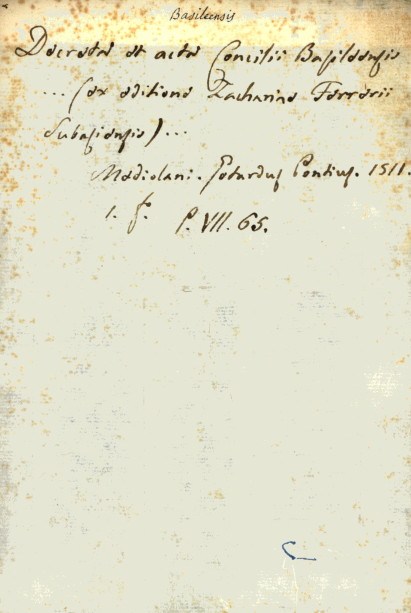 Basileensis
Decreta et acta Concilii Basileensis
... (ex editione Zachariae Ferrerii
Subasiensis) ...
Mediolani. Gotardus Pontius. 1511.
1. f. P. VII. 65.